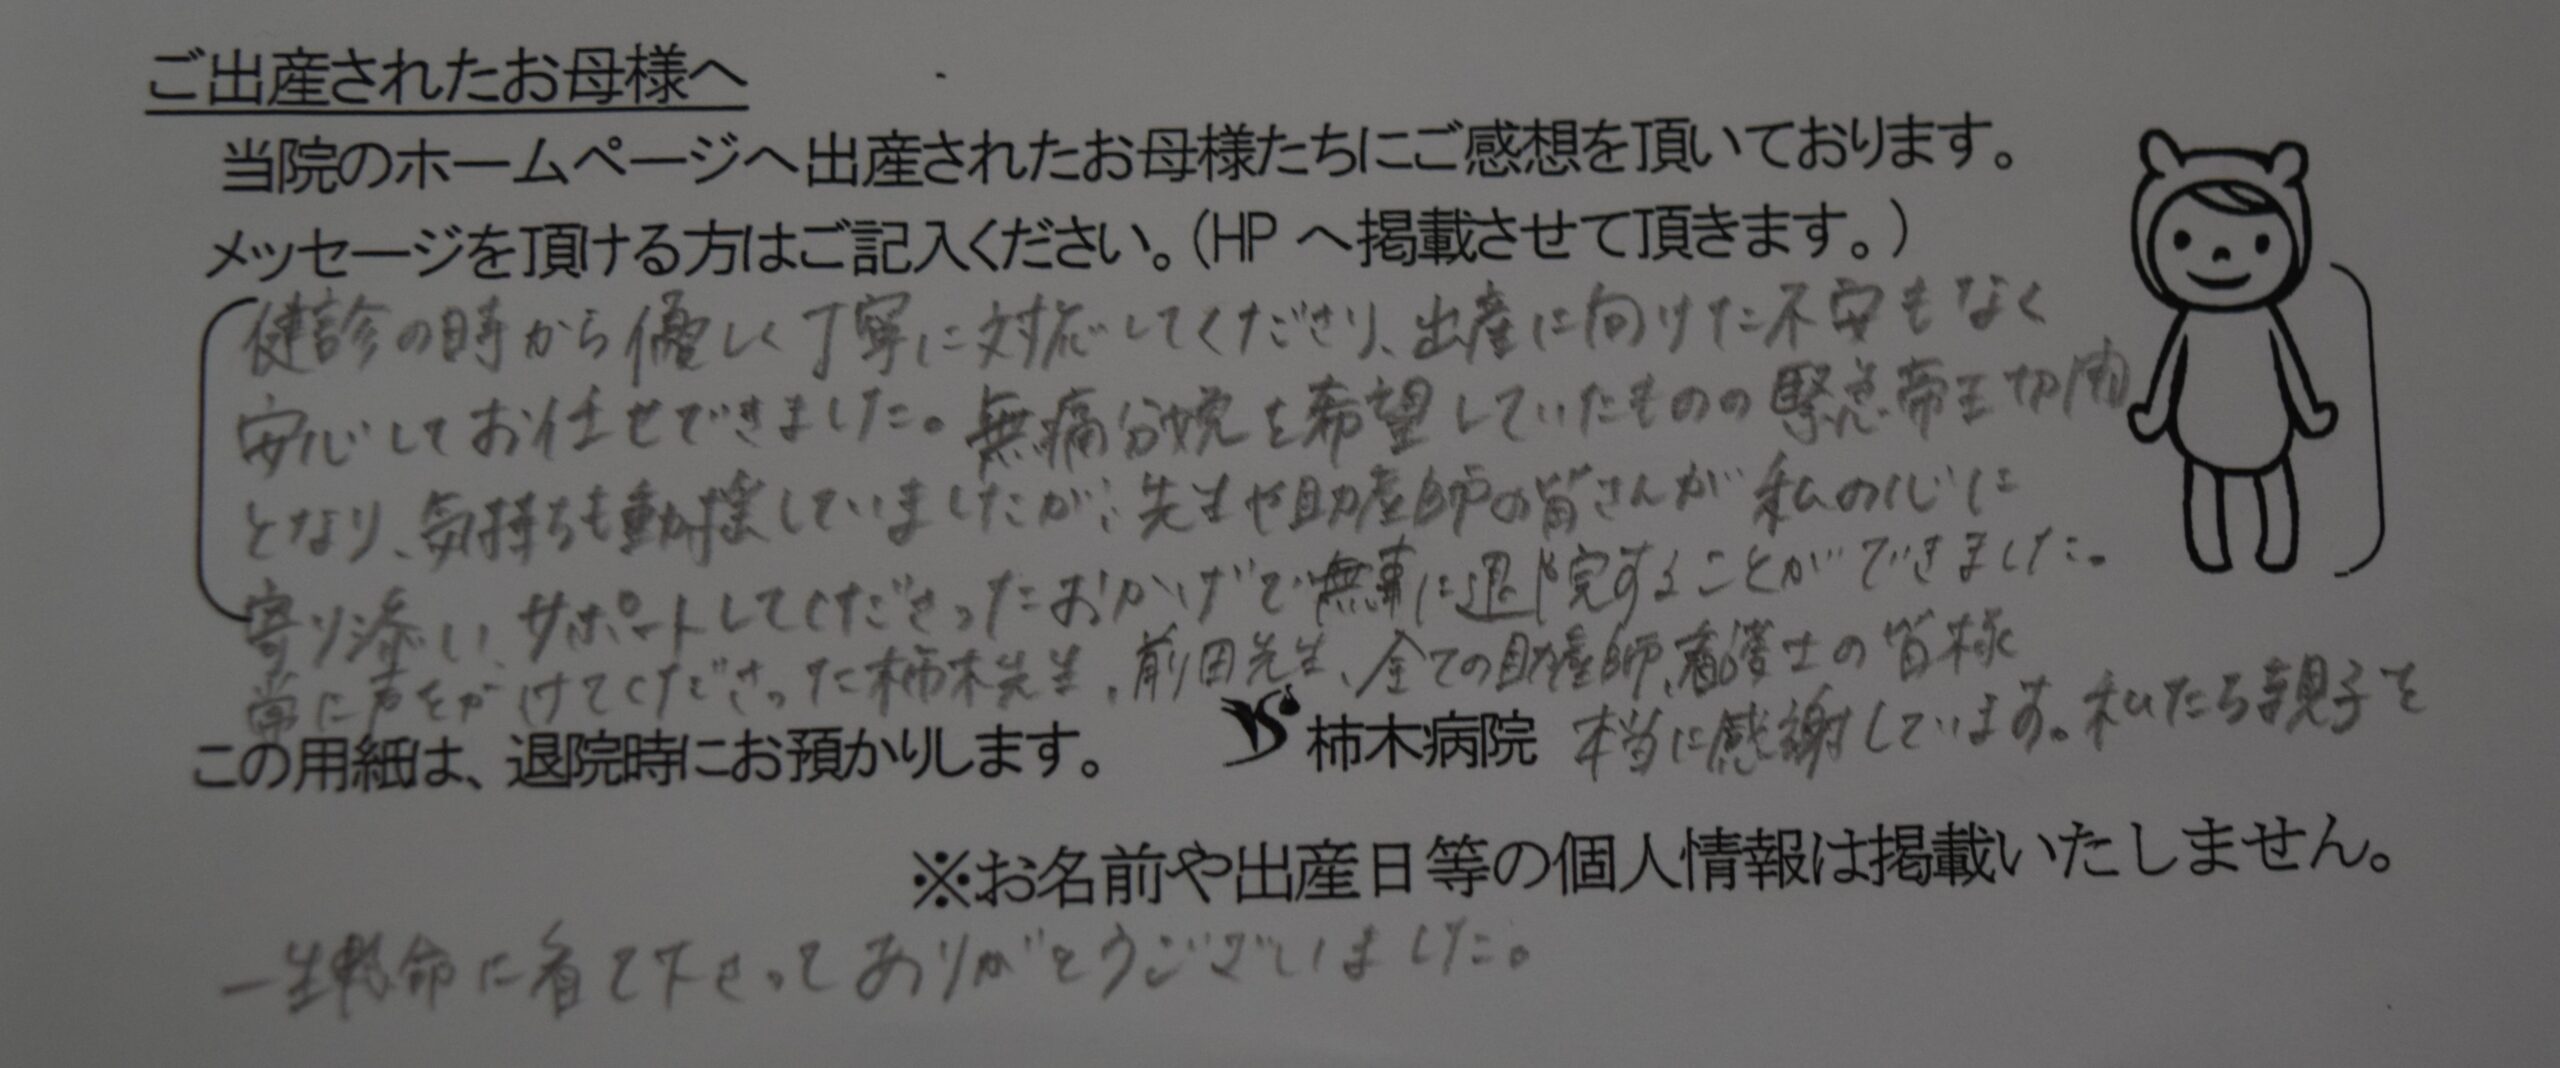 ご出産されたお母様へ
当院のホームページへ出産されたお母様たちにご感想を頂いております。
メッセージを頂ける方はご記入ください。(HP へ掲載させて頂きます。)
健診の時から優しく丁寧に対応してくださり、出産に向けた不安もなく
安心してお任せできました。無痛分娩を希望していたものの緊急帝王切開
となり、気持ちも動揺していましたが、先生や助産師の皆さんが私の心に
寄り添い、サポートしてくださったおかげで無事に退院することができました。
常に声をかけてくださった柿木先生、前田先生、全ての助産師、看護士の皆様
本当に感謝しています。私たち親子を
この用紙は、退院時にお預かりします。 柿木病院
※お名前や出産日等の個人情報は掲載いたしません。
一生懸命に看て下さってありがとうございました。